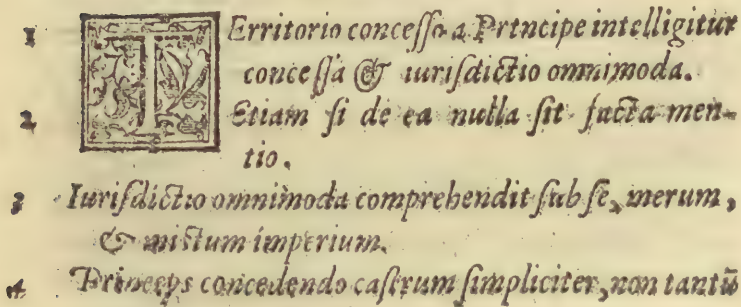 1 TErritorio concesso a Principe intelligitur
concessa & iurisdictio omnimoda.
2 Etiam si de ea nulla sit facta men-
tio.
3 Iurisdictio omnimoda comprehendit sub se, merum,
& mistum imperium.
4 Princeps concedendo castrum simpliciter, non tantũ